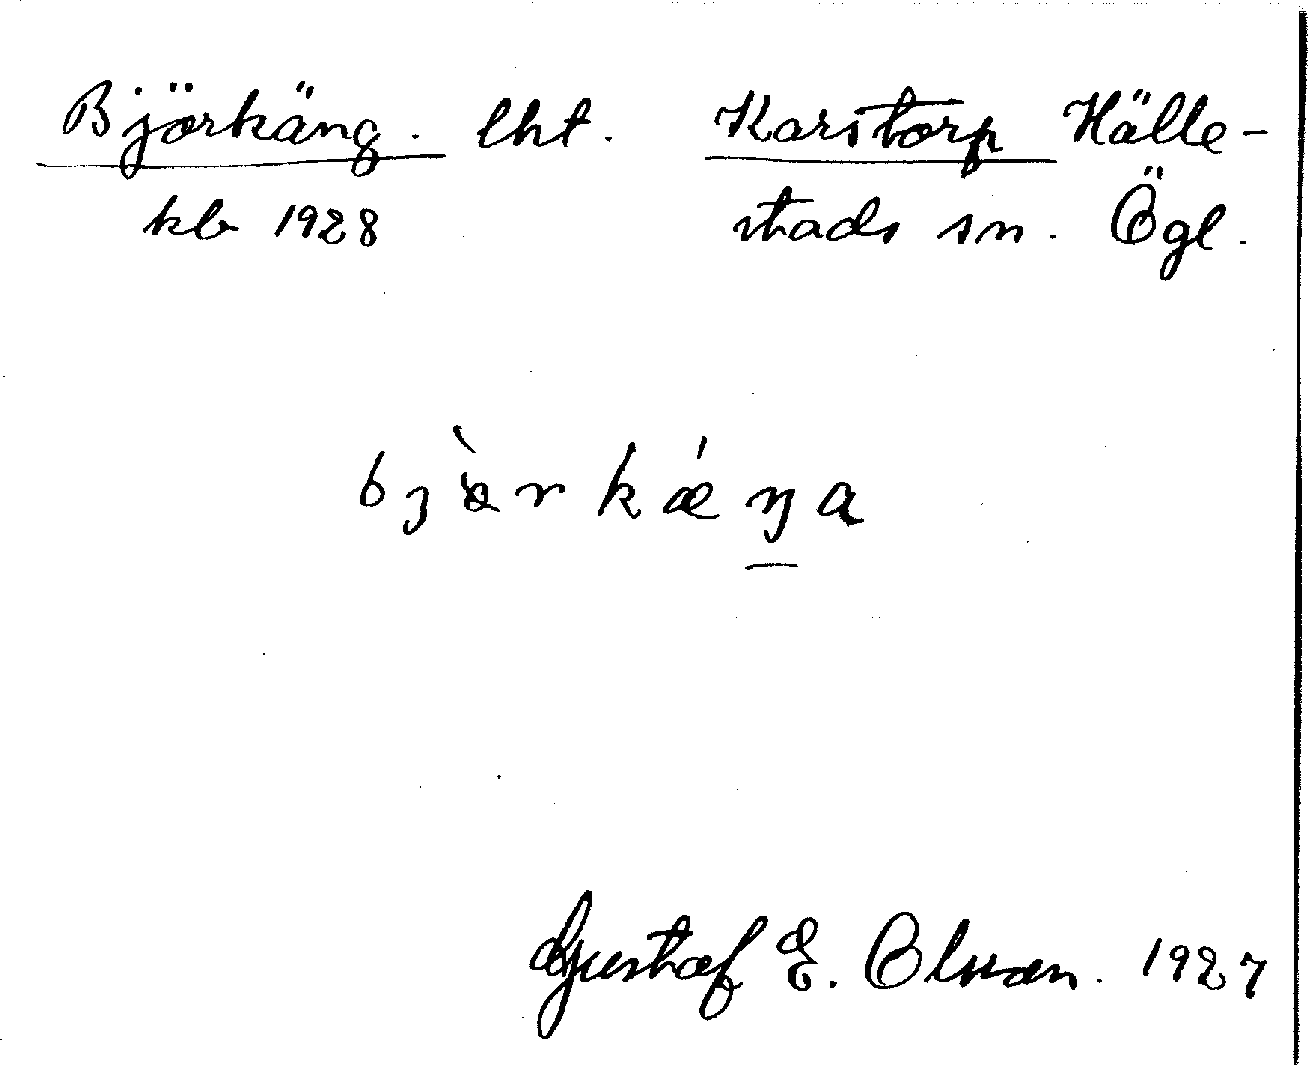 Björkäng. lht. Karstorp Hälle-
kb 1928 stads sn. Ögl.
bjœ̀rkǽŋa
Gustaf E. Olsson. 1927